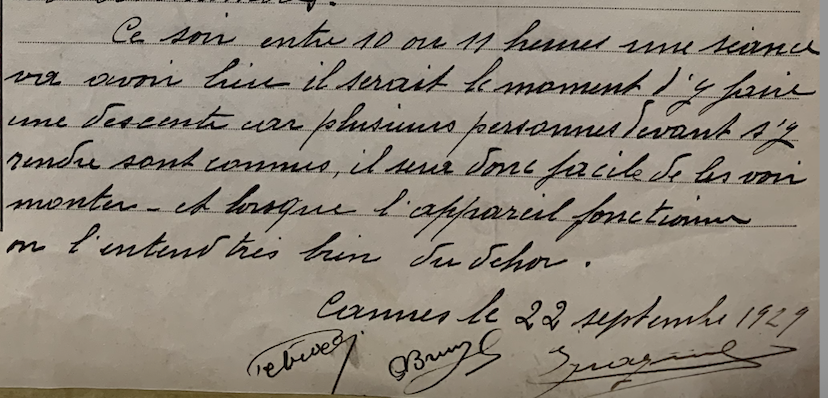 Ce soir entre 10 ou 11 heures une séance
va avoir lieu il serait le moment d'y faire
une descente car plusieurs personnes devant s'y
rendre sont connues, il sera donc facile de les voir
monter - et lorsque l'appareil fonctionne
on l'entend très bien du dehor.
Cannes le 22 septembre 1929